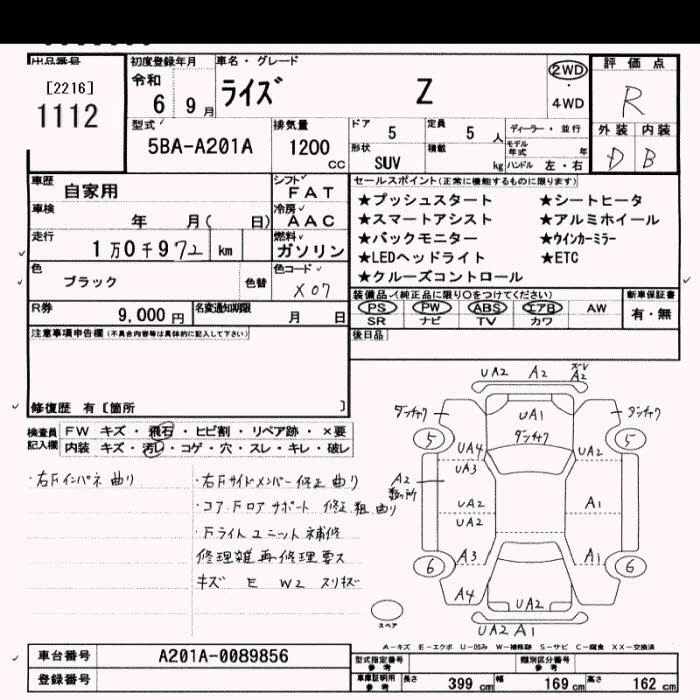 出品番号
[2216]
1112
初度登録年月
令和
6 9月
車名・グレード
ライズ Z
2WD
・
4WD
評価点
R
外装 内装
D B
型式
5BA-A201A
排気量
1200
cc
ドア 5
定員 5 人
形状 SUV
積載 kg
ディーラー・並行
モデル年式 年
ハンドル 左・右
車歴
自家用
シフト
FAT
車検
年 月( 日)
冷房
AAC
走行
1万0千972 km
燃料
ガソリン
色
ブラック
色替
色コード
X07
R券
9,000円
名変通知期限
月 日
セールスポイント(正常に機能するものに限ります)
★プッシュスタート ★シートヒータ
★スマートアシスト ★アルミホイール
★バックモニター ★ウインカーミラー
★LEDヘッドライト ★ETC
★クルーズコントロール
装備品(純正品に限り○をつけてください)
PS PW ABS エアB AW
SR ナビ TV カワ
新車保証書
有・無
後日品
注意事項申告欄(不具合内容等は具体的に記入して下さい)
修復歴 有〔箇所 〕
検査員記入欄
FW キズ・飛石・ヒビ割・リペア跡・×要
内装 キズ・汚レ・コゲ・穴・スレ・キレ・破レ
・右Fインパネ曲り
・右Fサイドメンバー修正 曲り
・コア.Fロアサポート 修正 粗 曲り
・Fライトユニット補修
修理雑 再修理要ス
キズ E W2 スリキズ
UA2 A2 ズレ A2
ダンチャク UA1 ダンチャク
ダンチャク
5 5
UA4 UA2
UA3
A2
数ヶ所
UA2 A1
UA2
A3 A1
6 6
A4
UA2
UA2 A1
スペア
A-キズ E-エクボ U-凹み W-補修跡 S-サビ C-腐食 XX-交換済
車台番号
A201A-0089856
登録番号
型式指定番号 参考
類別区分番号 参考
車庫証明用 参考
長さ 399 cm
幅 169 cm
高さ 162 cm